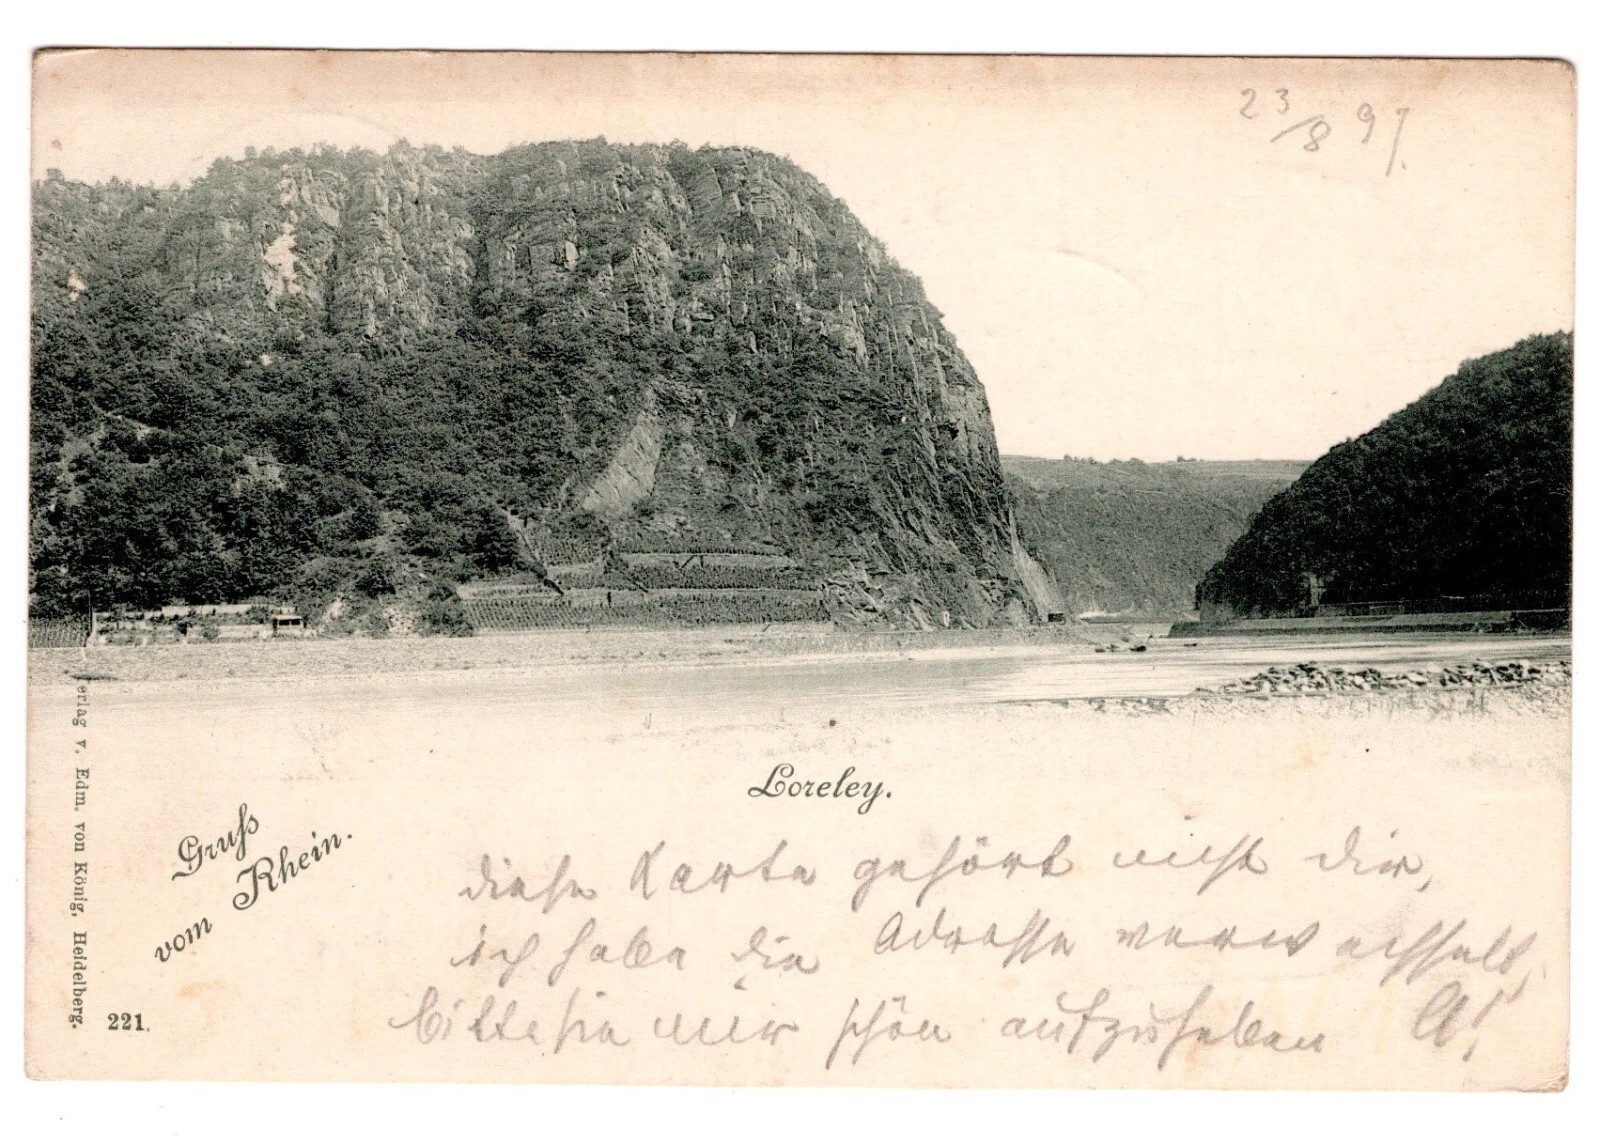 23/8 97.
Loreley.
Gruß
vom Rhein.
erlag v. Edm. von König, Heidelberg.
221.
diese Karte gehört nicht dir,
ich habe die Adresse verwechselt,
bitte sie mir schön aufzuheben A!